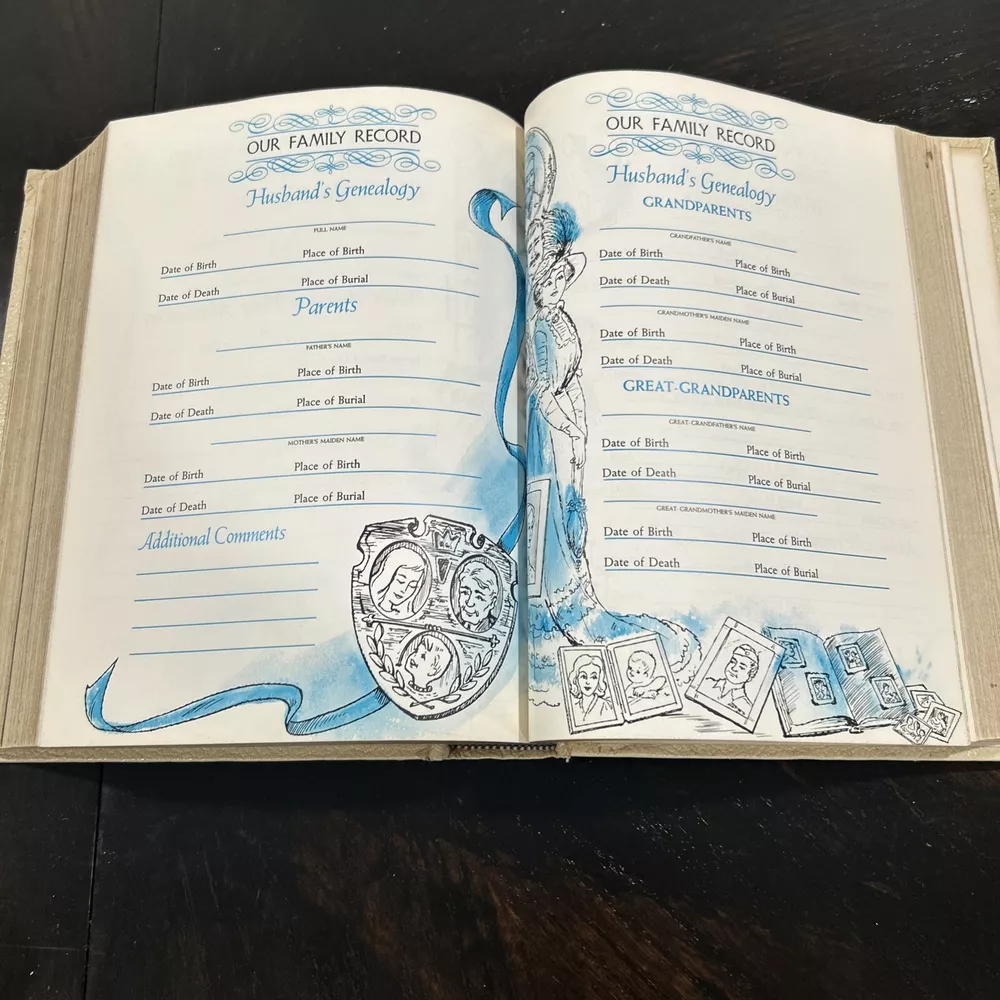 OUR FAMILY RECORD
Husband's Genealogy
FULL NAME
Date of Birth Place of Birth
Date of Death Place of Burial
Parents
FATHER'S NAME
Date of Birth Place of Birth
Date of Death Place of Burial
MOTHER'S MAIDEN NAME
Date of Birth Place of Birth
Date of Death Place of Burial
Additional Comments
OUR FAMILY RECORD
Husband's Genealogy
GRANDPARENTS
GRANDFATHER'S NAME
Date of Birth Place of Birth
Date of Death Place of Burial
GRANDMOTHER'S MAIDEN NAME
Date of Birth Place of Birth
Date of Death Place of Burial
GREAT-GRANDPARENTS
GREAT-GRANDFATHER'S NAME
Date of Birth Place of Birth
Date of Death Place of Burial
GREAT-GRANDMOTHER'S MAIDEN NAME
Date of Birth Place of Birth
Date of Death Place of Burial